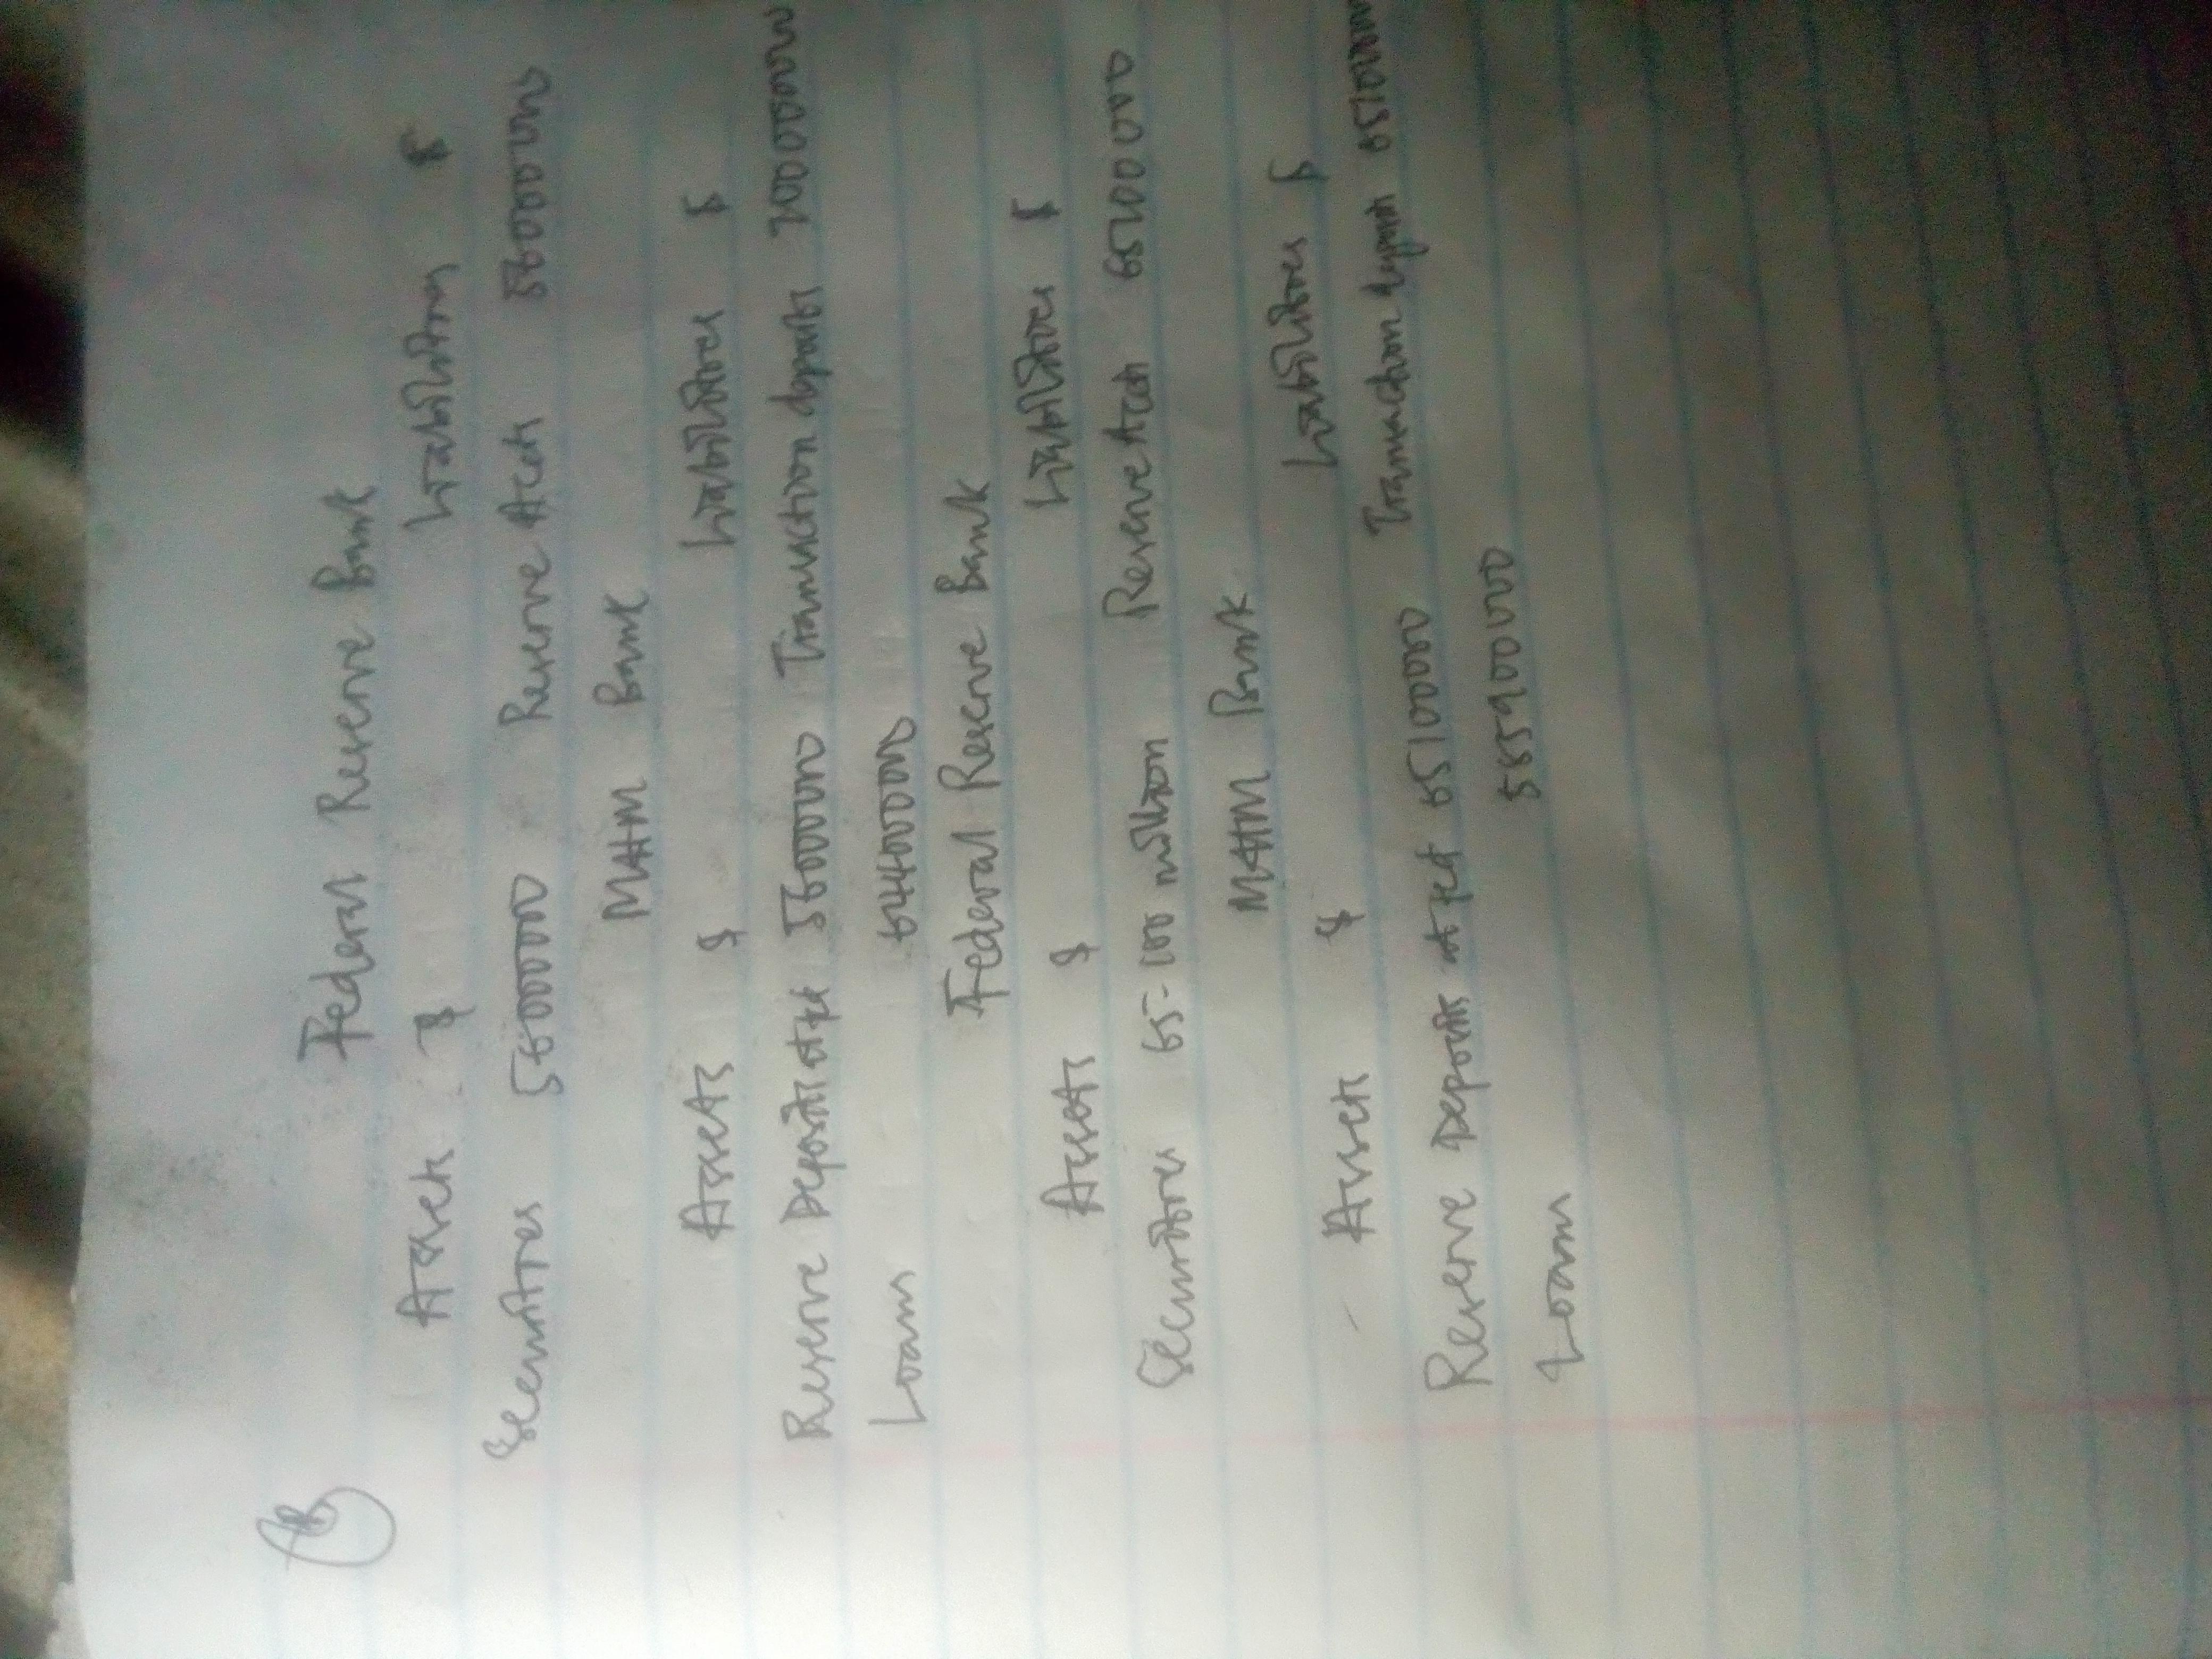 B
Federal Reserve Bank
Assets $ Liabilities $
Securities 5600000 Reserve Acct 5600000
M&M Bank
Assets $ Liabilities $
Reserve Deposits at fed 5600000 Transaction deposits
Loans 64400000
Federal Reserve Bank
Assets $ Liabilities $
Securities 65-100 million Reserve Acct
M&M Bank
Assets $ Liabilities $
Transaction deposit
Reserve Deposits at fed 6510000
Loans 58590000